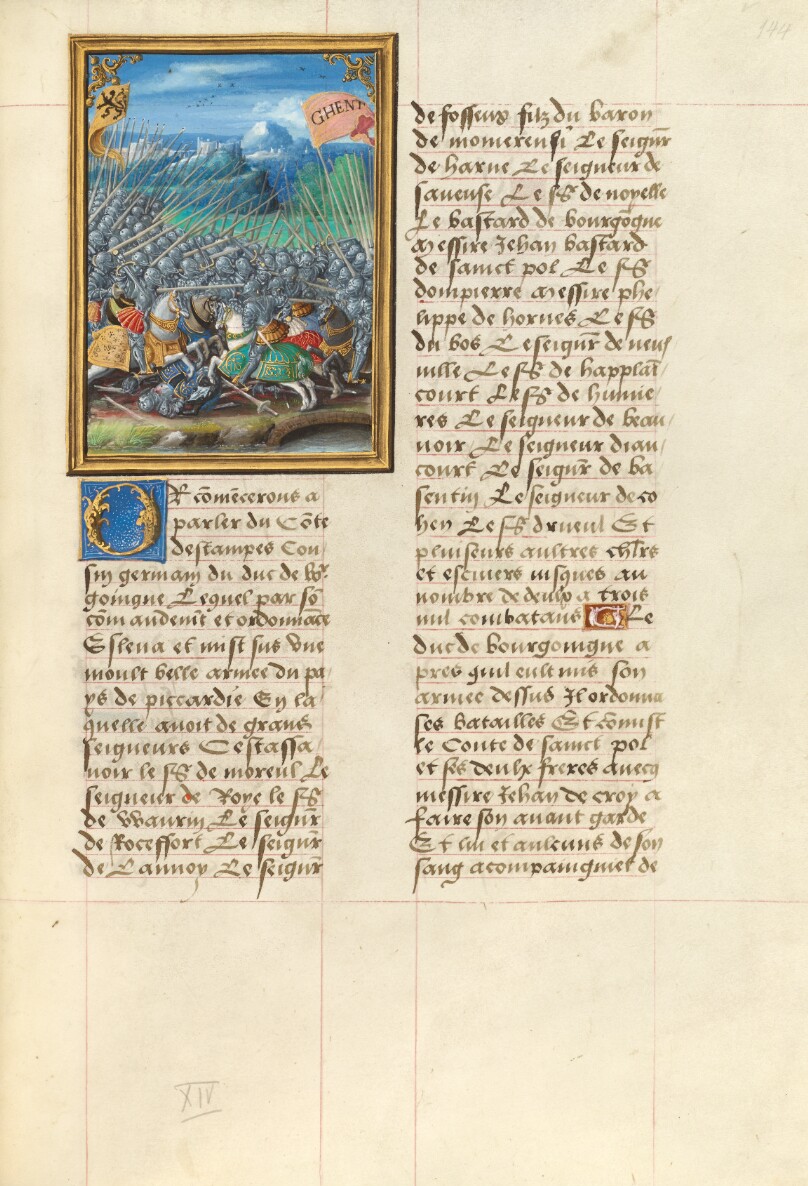 144
GHENT
Or cōmēcerons a
parler du Cōte
destampes Cou
sin germain du duc de
goingne Lequel par sō
cōm andemt et ordonnāce
Esleua et mist sus vne
moult belle armee du pa
ys de piccardie En la
quelle auoit de grans
seigneurs Cestassa
uoir le sr de moreul Le
seigneur de Roye le sr
de Waurin Le seigūr
de Roceffort Le seigūr
de Lannoy Le seigūr
de fosseux filz du baron
de momerensi Le seigūr
de harne Le seigneur de
saueuse Le sr de noyelle
Le bastard de bourgōgne
Messire Jehan bastard
de sainct pol Le sr
dompierre Messire phe
lippe de hornes Le sr
du bos Le seigūr de neuf
uille Le sr de happlai
court Le sr de humie
res Le seigneur de beau
uoir Le seigneur diau
court Le seigūr de ba
sentin Le seigneur de co
hen Le sr drueul Et
pluiseurs aultres chlrs
et escuiers iusques au
nombre de deulx a trois
mil combatans Le
duc de bourgoingne a
pres quil eult mis son
armee dessus Il ordonna
ses batailles Et cōmist
le Conte de sainct pol
et ses deulx freres auecq
messire Jehan de croy a
faire son auant garde
Et lui et aulcuns de son
sang acompaingniet de
XIV